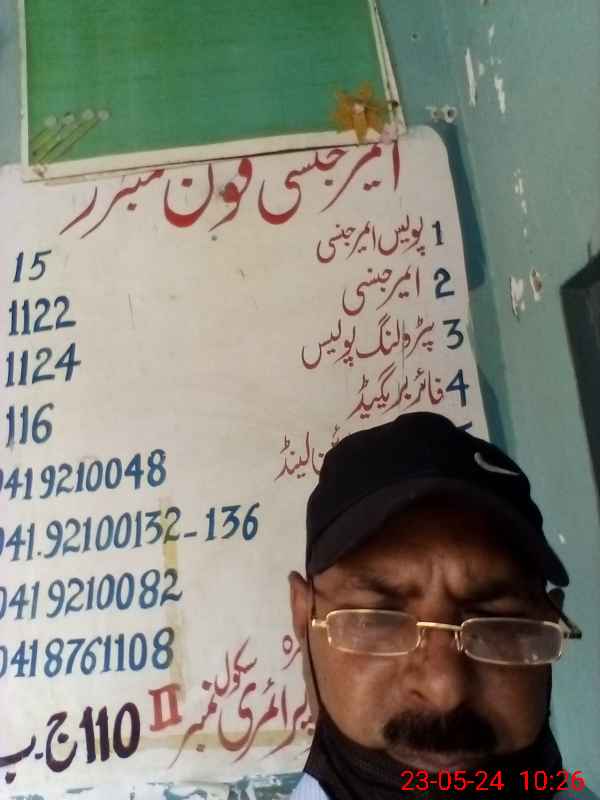 ایمرجنسی فون نمبرز
1 پولیس ایمرجنسی 15
2 ایمرجنسی 1122
3 پٹرولنگ پولیس 1124
4 فائر بریگیڈ 116
لینڈ 0419210048
041.92100132-136
0419210082
0418761108
پرائمری سکول نمبر II
110 ج-ب
23-05-24 10:26